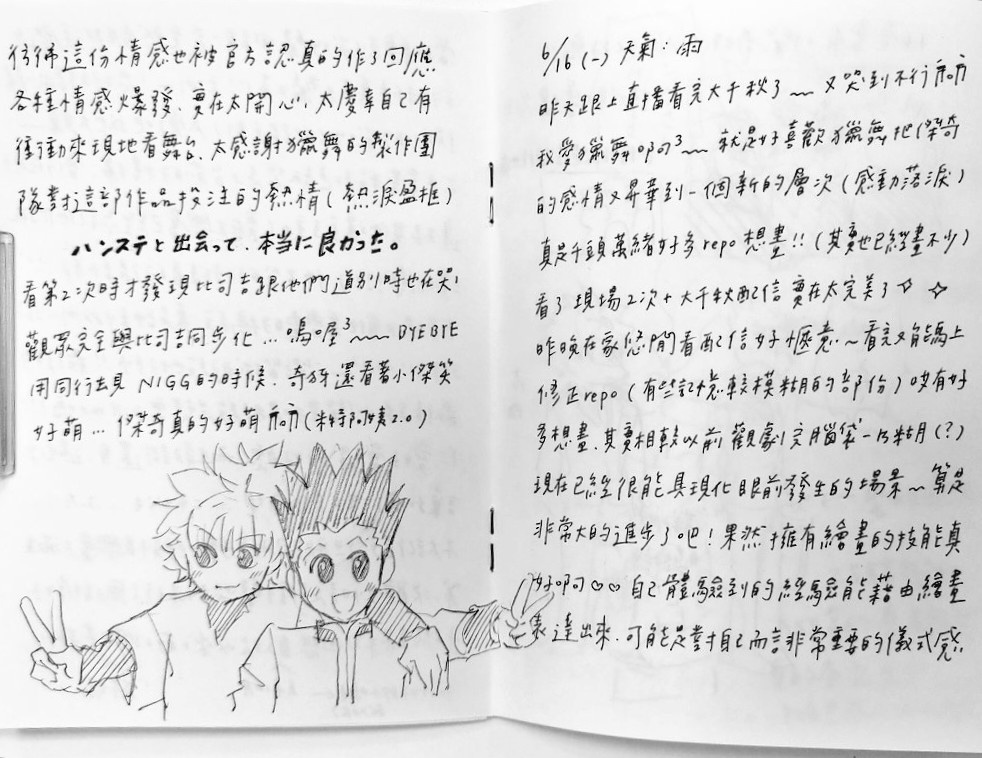 彷彿這份情感也被官方認真的作了回應
各種情感爆發、實在太開心，太慶幸自己有
衝動來現地看舞台、太感謝獵舞的製作團
隊對這部作品投注的熱情(熱淚盈框)
ハンステと出会って、本当に良かった。
看第2次時才發現比司吉跟他們道別時也在哭，
觀眾完全與比司吉同步化…嗚喔³~~ BYEBYE
用同行去見 NIGG的時候、奇犽還看著小傑笑
好萌… 傑奇真的好萌ㄞㄞ(米特阿姨2.0)
6/16 (一) 天氣：雨
昨天跟上直播看完大千秋了~~ 又哭到不行ㄞㄞ
我愛獵舞啊啊³~~ 就是好喜歡獵舞把傑奇
的感情又昇華到一個新的層次(感動落淚)
真是千頭萬緒好多repo想畫!! (其實也已經畫不少)
看了現場2次+大千秋配信 實在太完美了✧ ✧
昨晚在家悠閒看配信好愜意~看完又能馬上
修正repo(有些記憶較模糊的部份) 哎有好
多想畫、其實相較以前觀劇完腦袋一片糊(?)
現在已經很能具現化眼前發生的場景~算是
非常大的進步了吧！果然擁有繪畫的技能真
好啊♡♡ 自己體驗到的經驗能藉由繪畫
表達出來、可能是對自己而言非常重要的儀式感